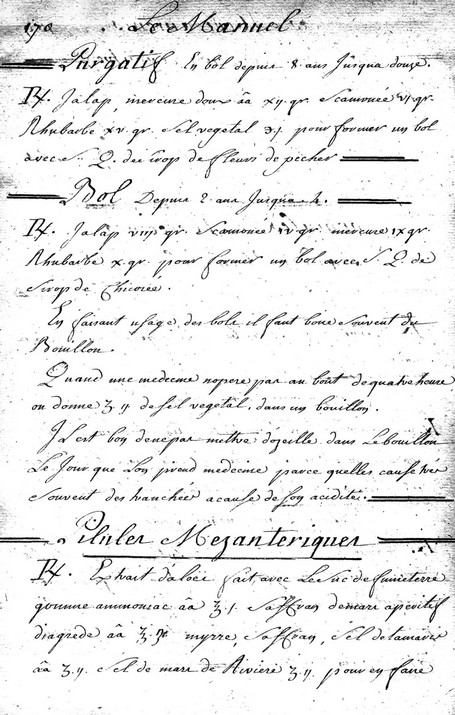 170 Le Manuel
Purgatif En bol depuis 8 ans Jusqua douze.
℞. Jalap, mercure doux āā xij gr. Scamonée vj gr.
Rhubarbe xv gr. Sel vegetal ʒj pour former un bol
avec S. Q. de sirop de fleurs de pecher
Bol Depuis 2 ans Jusqua 4.
℞. Jalap viij gr. Scamonée iv gr. mercure ix gr.
Rhubarbe x gr. pour former un bol avec S. Q. de
Sirop de Chicorée.
En faisant usage des bols il faut boire souvent du
Bouillon.
Quand une medecine nopere pas au bout de quatre heure
on donne ʒ ij de sel vegetal, dans un bouillon.
Il est bon de ne pas mettre dozeille dans Le bouillon
Le Jour que Lon prend medecine parce quelles cause très
souvent des tranchées a cause de son acidité.
Pilules Mezanteriques
℞. Extrait daloës fait avec Le suc de fumeterre
gomme ammoniac āā ʒ j. Saffran de mars aperitif
diagrede āā myrre, Saffran, Sel de tamaris
āā ʒ ij. Sel de mars de Riviere ʒ ij. pour en faire